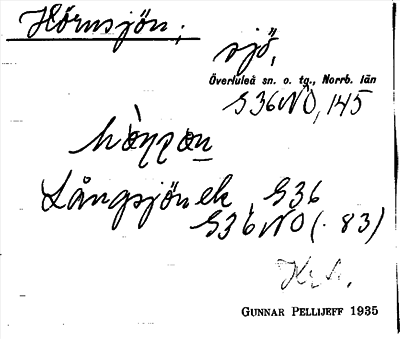 Hörnsjön,
sjö,
Överluleå sn. o. tg., Norrb. län
S36NO, 145
Långsjön ek. S36
S36NO (. 83)
GUNNAR PELLIJEFF 1935